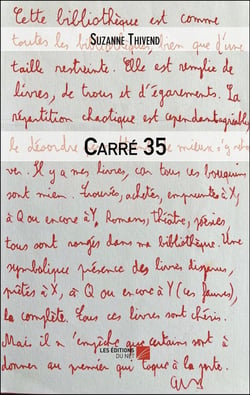 Cette bibliothèque est comme
SUZANNE THIVEND
toutes les bibliothèques, bien que d'une
taille restreinte. Elle est remplie de
livres, de trous et d'égarements. La
répartition chaotique est cependant agréable,
CARRÉ 35
le désordre mieux s'y retrou
ver. Il y a mes livres, car tous ces bouquins
sont mien. Trouvés, achetés, empruntés à X,
à Q ou encore à Y, Romans, théâtre, poésies
tous sont rangés dans ma bibliothèque. Une
symbolique présence des livres disparus,
prêtés à X, à Q ou encore à Y (ces fauves),
la complète. Tous ces livres sont chéris.
Mais il n'empêche que certains sont à
donner au premier qui toque à la porte.
LES ÉDITIONS
DU NET